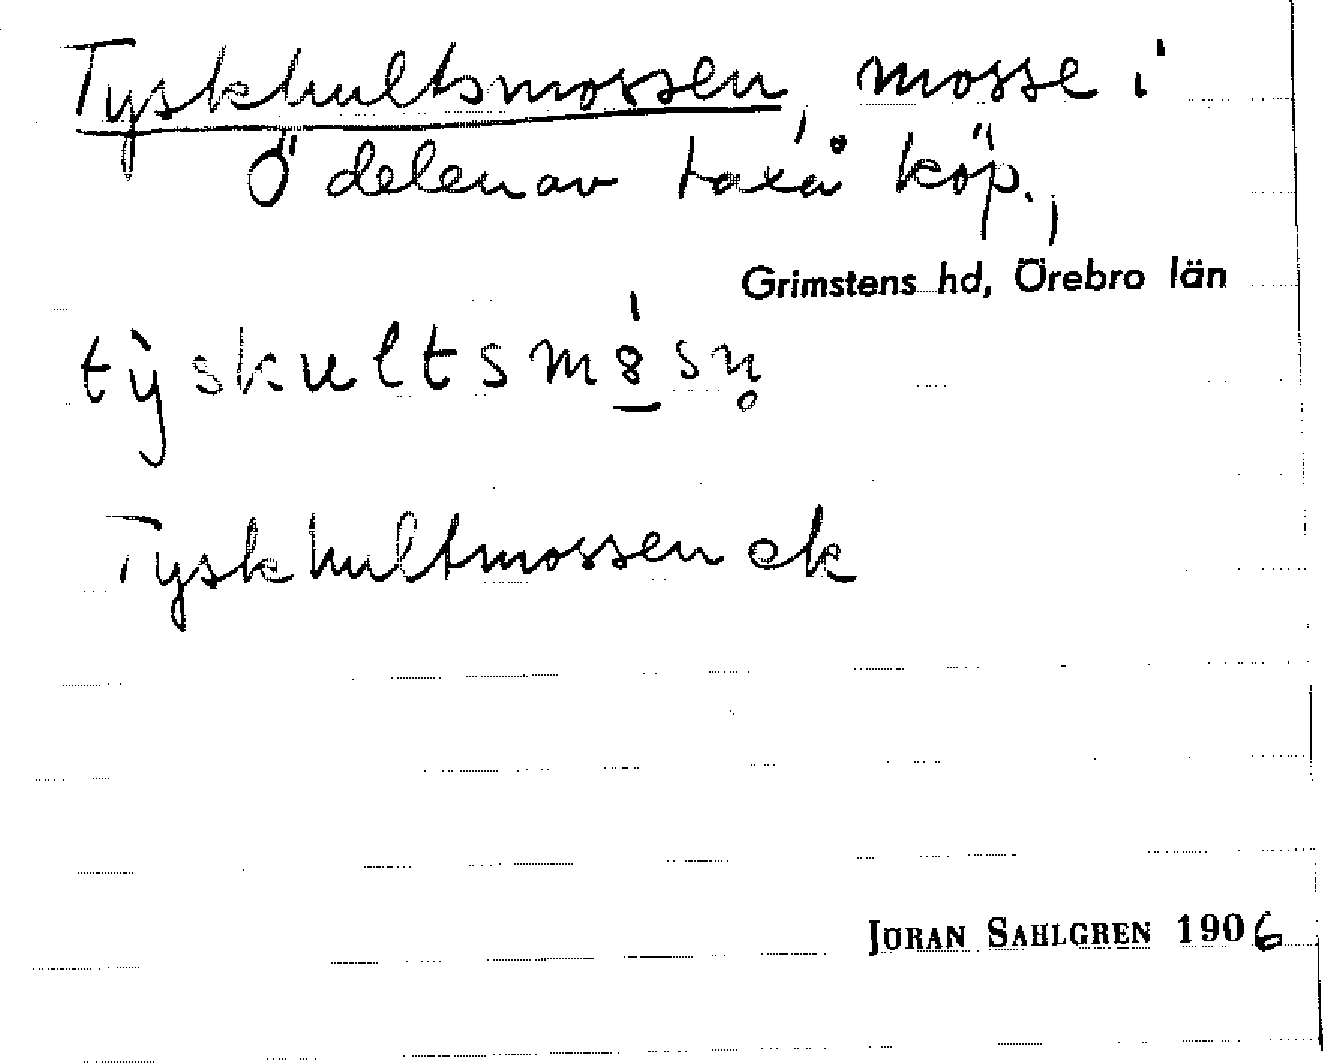 Tyskhultsmossen, mosse i
Ö delen av Laxå köp.,
Grimstens hd, Örebro län
tỳskultsm8̲́sn̥
Tyskhultmossen ek
JÖRAN SAHLGREN 1906